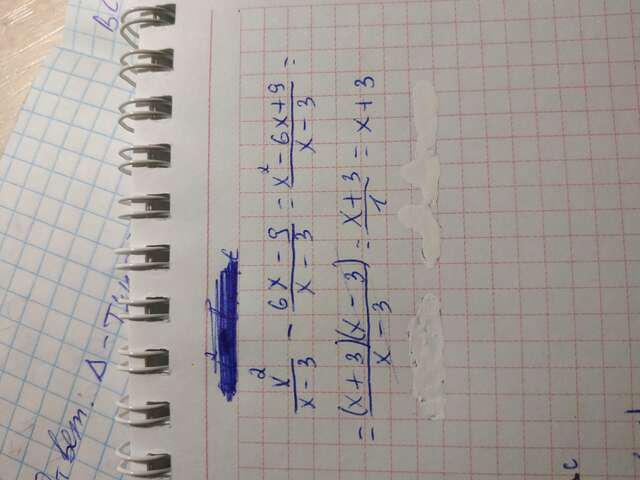 Ответ: Δ - т
BC
x²/(x - 3) - (6x - 9)/(x - 3) = (x² - 6x + 9)/(x - 3) =
= (x + 3)(x - 3)/(x - 3) = (x + 3)/1 = x + 3
c